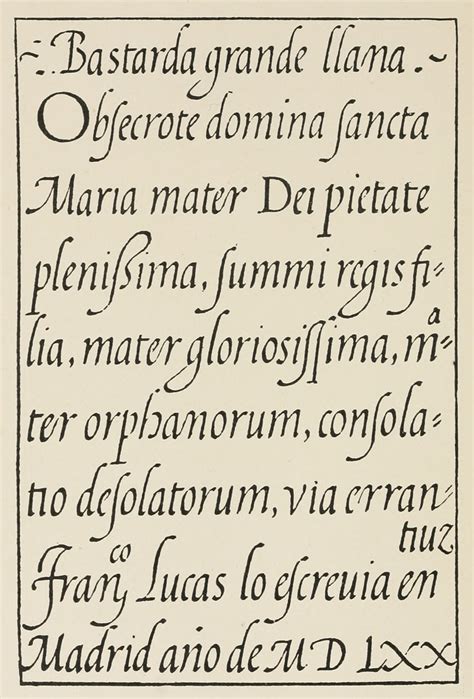 ~:· Bastarda grande llana ·~
Obſecrote domina ſancta
Maria mater Dei pietate
pleniſsima, ſummi regis fi=
lia, mater glorioſiſſima, mᵃ=
ter orphanorum, conſola=
tio deſolatorum, via erran=
tiuꝫ
Franᶜᵒ Lucas lo eſcreuia en
Madrid año de M D LXX